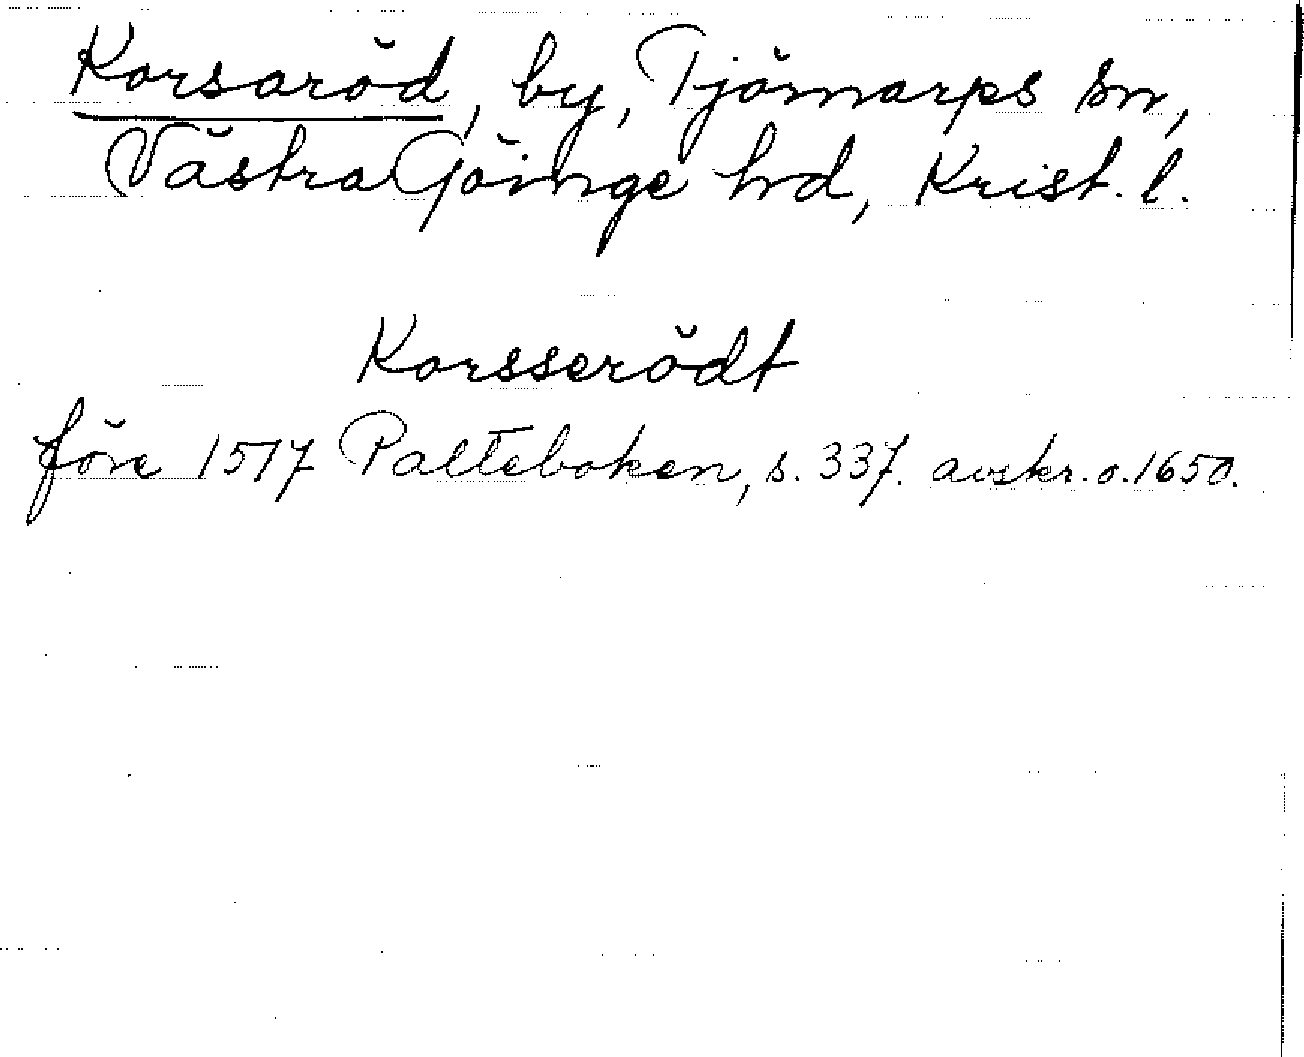 Korsaröd, by, Tjörnarps sn,
Västra Göinge hd, Krist. l.
Korsserödt
före 1517 Palteboken, s. 337. avskr. o. 1650.